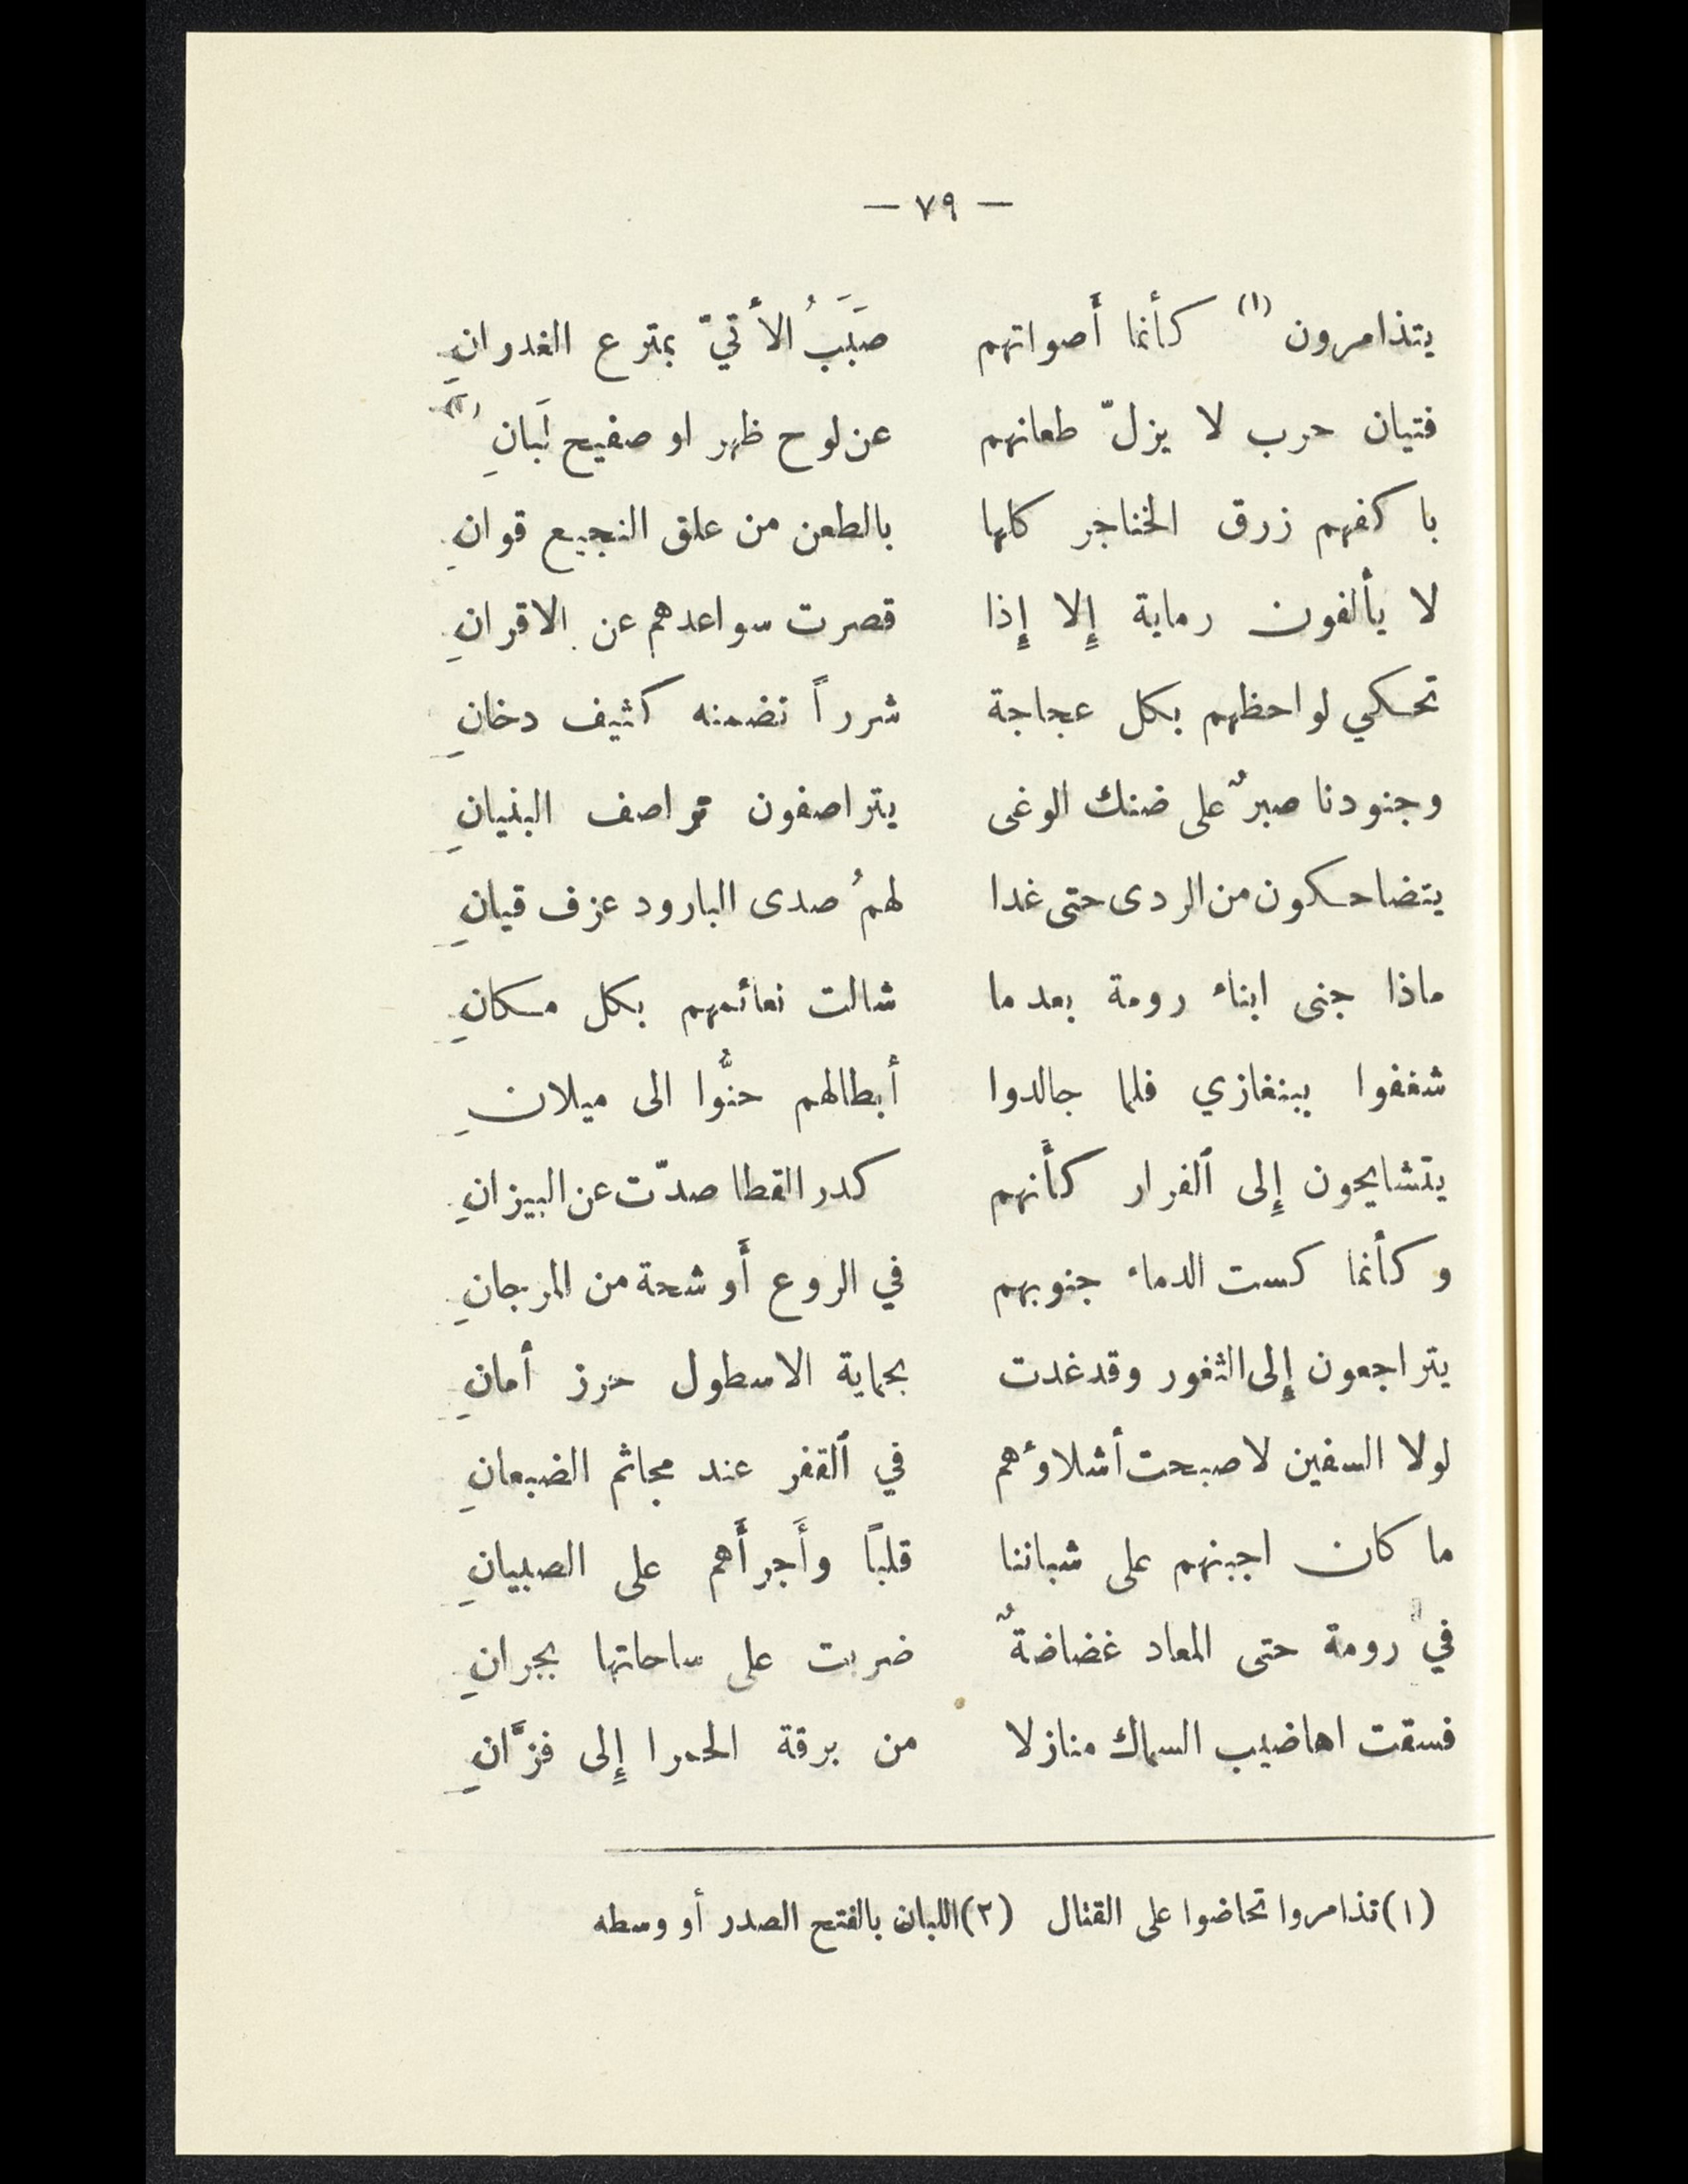 — ٧٩ —
يتذامرون (١) كأنما أَصواتهم صَبَبُ الأَتيّ بمترع الغدرانِ
فتيان حرب لا يزلّ طعانهم عن لوح ظهر او صفيح لَبانِ (٢)
باكفهم زرق الخناجر كلها بالطعن من علق النجيع قوانِ
لا يألفون رماية إِلا إِذا قصرت سواعدهم عن الاقرانِ
تحكي لواحظهم بكل عجاجة شرراً تضمنه كثيف دخانِ
وجنودنا صبرٌ على ضنك الوغى يتراصفون تراصف البنيانِ
يتضاحكون من الردى حتى غدا لهمُ صدى البارود عزف قيانِ
ماذا جنى ابناء رومة بعد ما شالت نعائمهم بكل مكانِ
شغفوا ببنغازي فلما جالدوا أبطالهم حنُّوا الى ميلانِ
يتشايحون إِلى ٱلفرار كأَنهم كدر القطا صدّت عن البيزانِ
وكأنما كست الدماء جنوبهم في الروع أَوشحة من المرجانِ
يتراجعون إِلى الثغور وقد غدت بحماية الاسطول حرز أمانِ
لولا السفين لاصبحت أشلاؤهم في ٱلقفر عند مجاثم الضبعانِ
ما كان اجبنهم على شباننا قلبًا وأَجرأَهم على الصبيانِ
في رومة حتى المعاد غضاضةٌ ضربت على ساحاتها بجرانِ
فسقت اهاضيب السماك منازلا من برقة الحمرا إِلى فزَّانِ
(١) تذامروا تحاضوا على القتال (٢) اللبان بالفتح الصدر أو وسطه